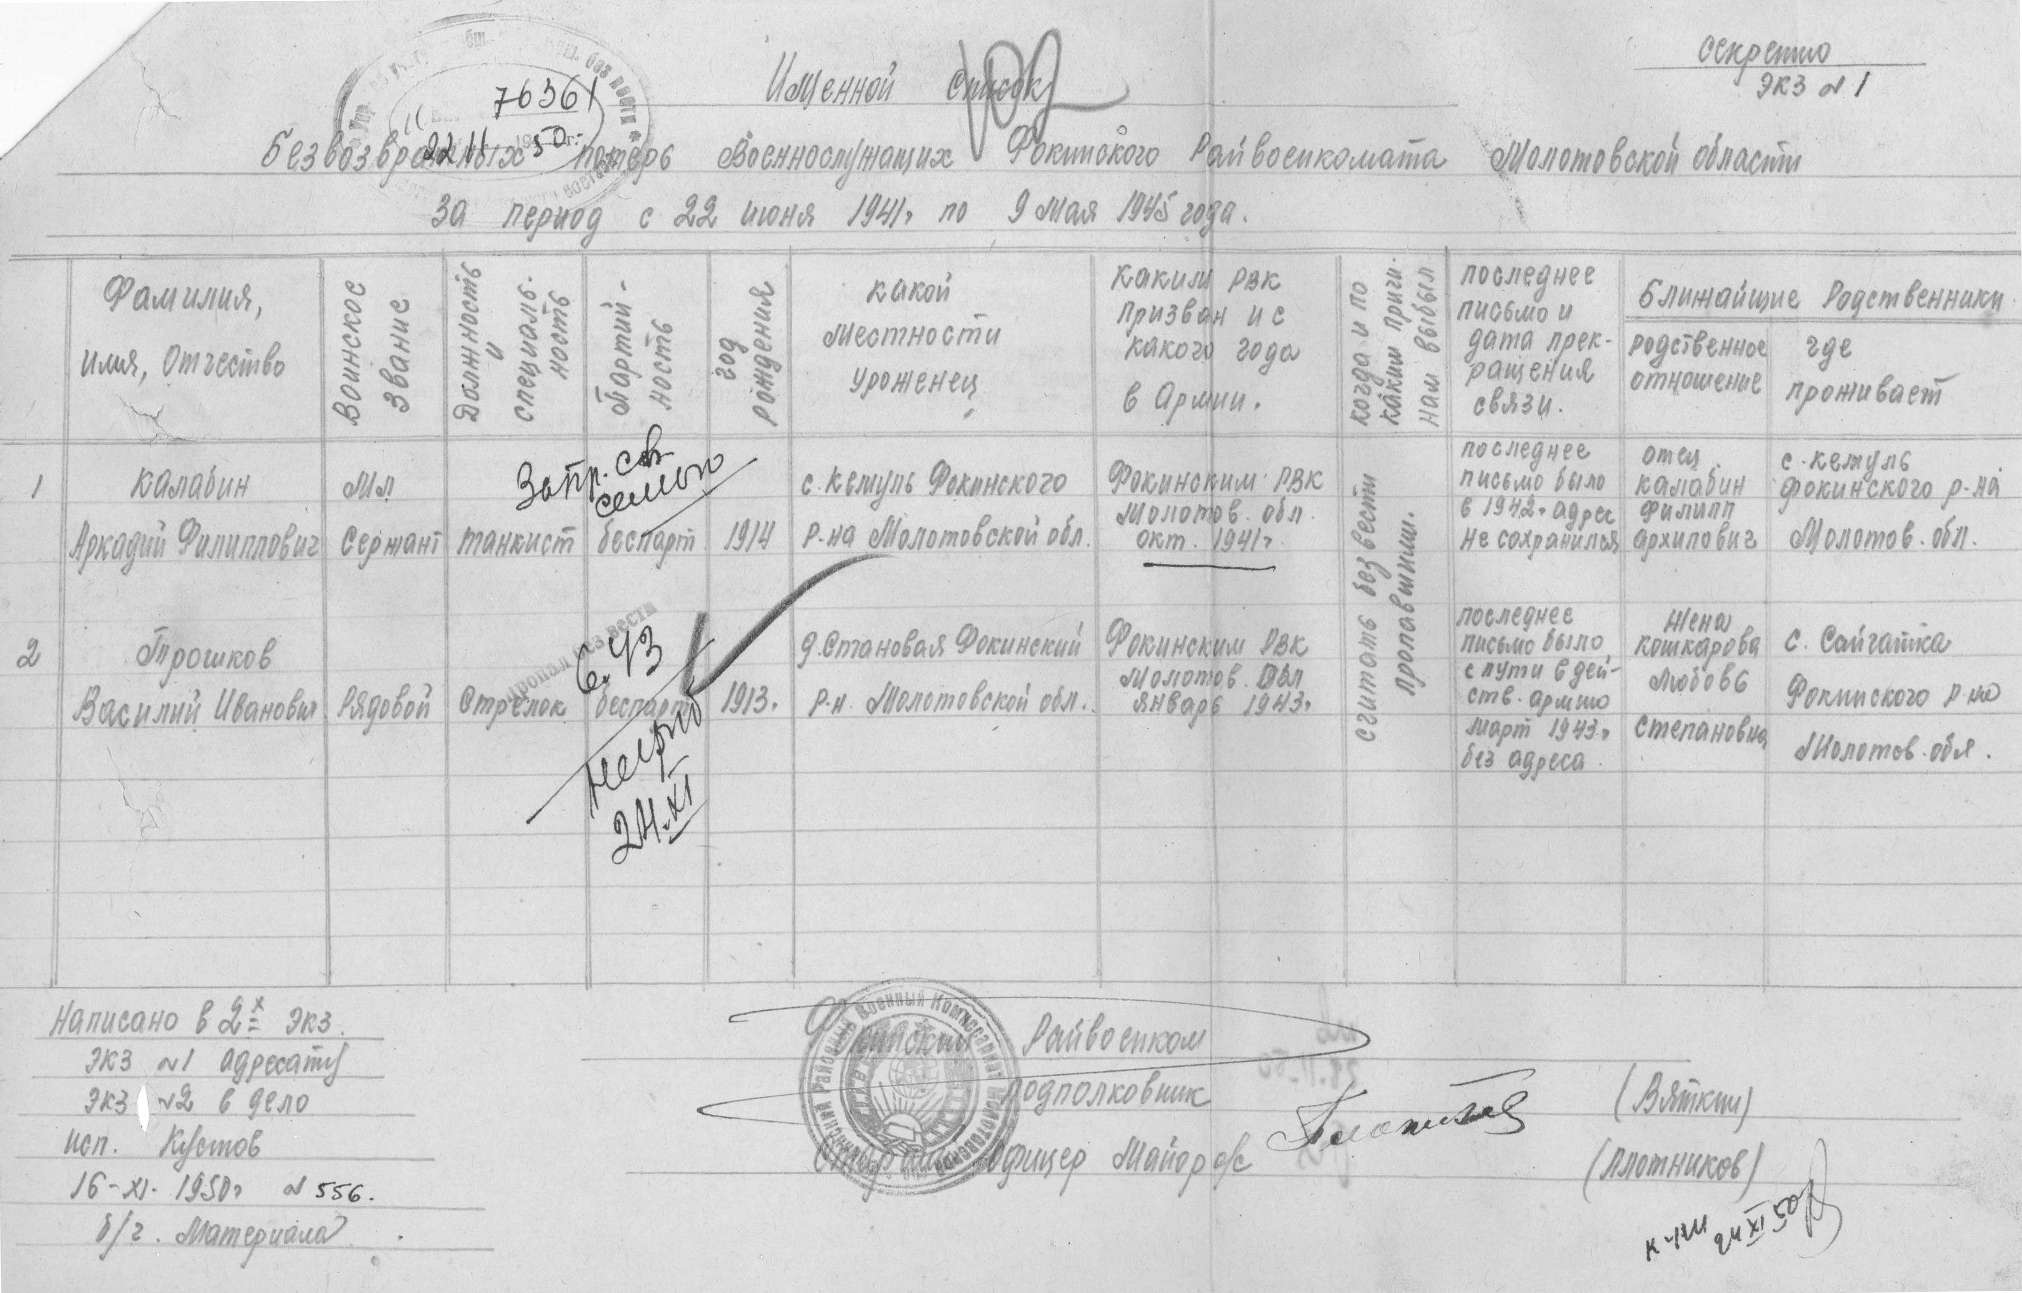 Секретно
Экз № 1
76361
22 11 50
Именной список
Безвозвратных потерь Военнослужащих Фокинского Райвоенкомата Молотовской области
за период с 22 июня 1941г по 9 мая 1945 года.
Фамилия,
имя, отчество
Воинское
звание
Должность
и
специаль-
ность
Партий-
ность
год
рождения
какой
местности
уроженец
каким РВК
призван и с
какого года
в Армии.
когда и по
каким причи-
нам выбыл
последнее
письмо и
дата прек-
ращения
связи.
Ближайщие Родственники
родственное
отношение
где
проживает
1
Калабин
Аркадий Филиппович
Мл
Сержант
танкист
Запр. св.
семью
беспарт
1914
с. кемуль Фокинского
р-на Молотовской обл.
Фокинским РВК
Молотов. обл.
окт. 1941г
считать без вести
пропавшими.
последнее
письмо было
в 1942г адрес
не сохранился
отец
калабин
Филипп
архипович
с. кемуль
Фокинского р-на
Молотов. обл.
2
Трошков
Василий Иванович
Рядовой
Стрелок
пропал без вести
6.43
беспарт
24.XI
1913г
д. Становая Фокинский
р-н. Молотовской обл.
Фокинским РВК
Молотов. обл
январь 1943г
последнее
письмо было
с пути в дей-
ств. армию
март 1943г
без адреса
Жена
кошкарова
Любовь
степановна
с. Сайгатка
Фокинского р-на
Молотов. обл.
Написано в 2х экз.
экз №1 адресату
экз №2 в дело
исп. Кустов
16-XI-1950г №556.
б/ч. Материала
Фокинский Райвоенком
подполковник
(Вяткин)
Старший офицер Майор а/с
(Плотников)
24 XI 50